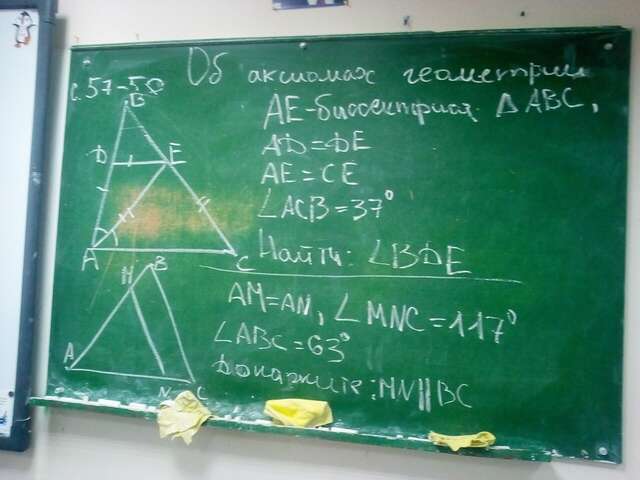 Об аксиомах геометрии
с.57-50
AE-биссектриса ΔABC,
AD=DE
AE=CE
∠ACB=37°
Найти: ∠BDE
B
D
E
A
C
AM=AN, ∠MNC=117°
∠ABC=63°
Докажите: MN||BC
M
B
A
N
C